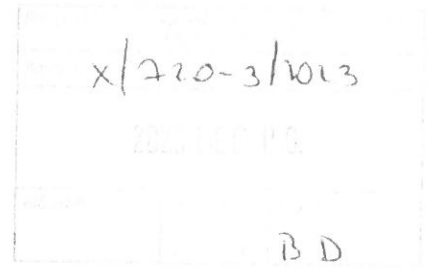 X/720-3/2023
B D